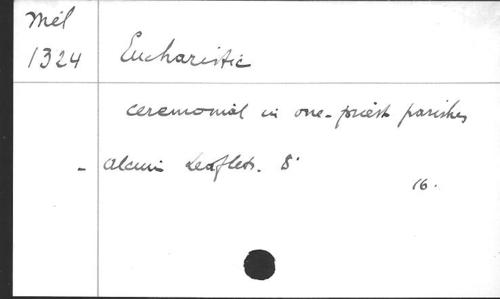 Mél
1324
Eucharistic
ceremonial in one-priest parishes
- Alcuin Leaflets. 8°
16.